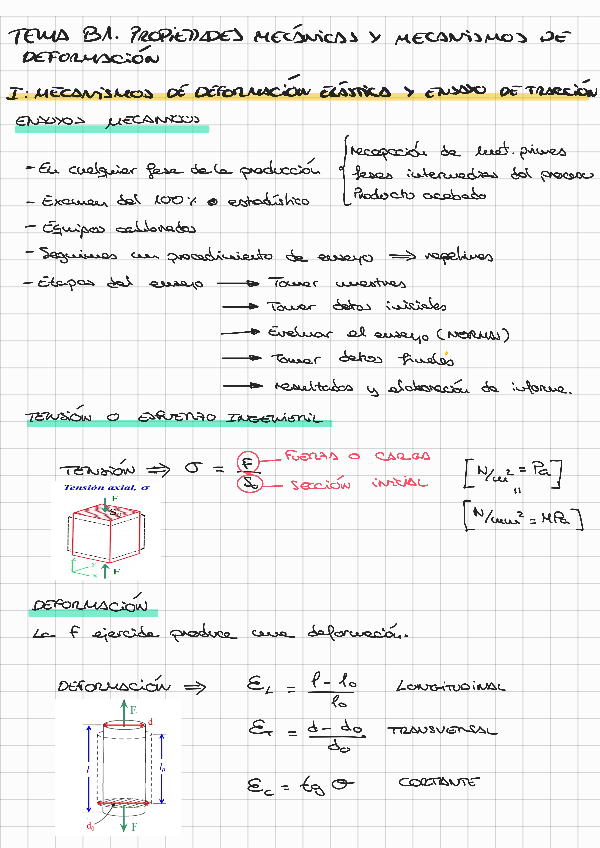 TEMA B1. PROPIEDADES MECÁNICAS Y MECANISMOS DE
DEFORMACIÓN
I: MECANISMOS DE DEFORMACIÓN ELÁSTICA Y ENSAYO DE TRACCIÓN
ENSAYOS MECANICOS
- En cualquier fase de la producción { recepción de mat. primas
fases intermedias del proceso
Producto acabado
- Examen del 100% o estadístico
- Equipos calibrados
- Seguimos un procedimiento de ensayo ⟹ repetimos
- Etapas del ensayo ⟶ Tomar muestras
⟶ Tomar datos iniciales
⟶ Evaluar el ensayo (NORMAS)
⟶ Tomar datos finales
⟶ resultados y elaboración de informe.
TENSIÓN O ESFUERZO INGENIERIL
TENSIÓN ⟹ σ = F / S₀
FUERZA O CARGA
SECCIÓN INICIAL
[N/m² = Pa]
[N/mm² = MPa]
Tensión axial, σ
F
S₀
F
DEFORMACIÓN
La F ejercida produce una deformación.
DEFORMACIÓN ⟹ ε_L = (l - l₀) / l₀ LONGITUDINAL
ε_T = (d - d₀) / d₀ TRANSVERSAL
ε_C = tg θ CORTANTE
F
d
l
l₀
d₀
F